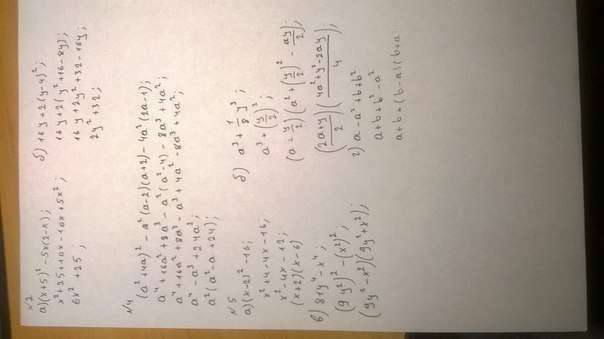 №2
а)(x+5)² - 5x(2-x);
x²+25+10x-10x+5x²;
6x²+25;
б) 16y+2(y-4)²;
16y+2(y²+16-8y);
16y+2y²+32-16y;
2y²+32;
№4
(a²+4a)² - a²(a-2)(a+2) - 4a²(2a-1);
a⁴+16a²+8a³ - a²(a²-4) - 8a³+4a²;
a⁴+16a²+8a³ - a⁴+4a² - 8a³+4a²;
a⁴-a³+24a²;
a²(a²-a+24);
№5
а)(x-2)²-16;
x²+4-4x-16;
x²-4x-12;
(x+2)(x-6)
б) a³ + 1/8 y³;
a³+(y/2)³;
(a + y/2)(a²+(y/2)² - ay/2);
(2a+y / 2)(4a²+y²-2ay / 4);
в) 81y⁴-x⁴;
(9y²)²-(x²)²;
(9y²-x²)(9y²+x²);
г) a-a²+b+b²
a+b+b²-a²
a+b+(b-a)(b+a